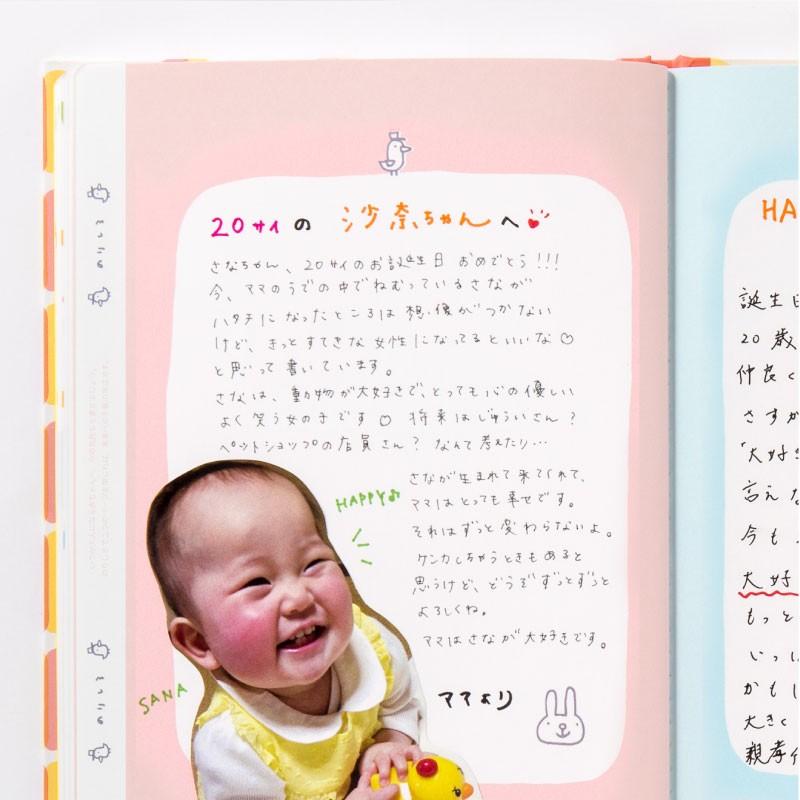 20サイの 沙奈ちゃんへ
さなちゃん、20サイのお誕生日 おめでとう!!!
今、ママのうでの中でねむっているさなが
ハタチになったところは想像がつかない
けど、きっとすてきな女性になってるといいな♡
と思って書いています。
さなは、動物が大好きで、とっても心の優しい
よく笑う女の子です♡ 将来はじゅういさん?
ペットショップの店員さん? なんて考えたり…
さなが生まれて来てくれて、
ママはとっても幸せです。
それはずっと変わらないよ。
ケンカしちゃうときもあると
思うけど、どうぞずっとずっと
よろしくね。
ママはさなが大好きです。
ママより
HAPPY♪
SANA
HA
誕生日
20歳
仲良く
さすか
「大好き
言えな
今も
大好
もっと
いっし
かもし
大きく
親孝行